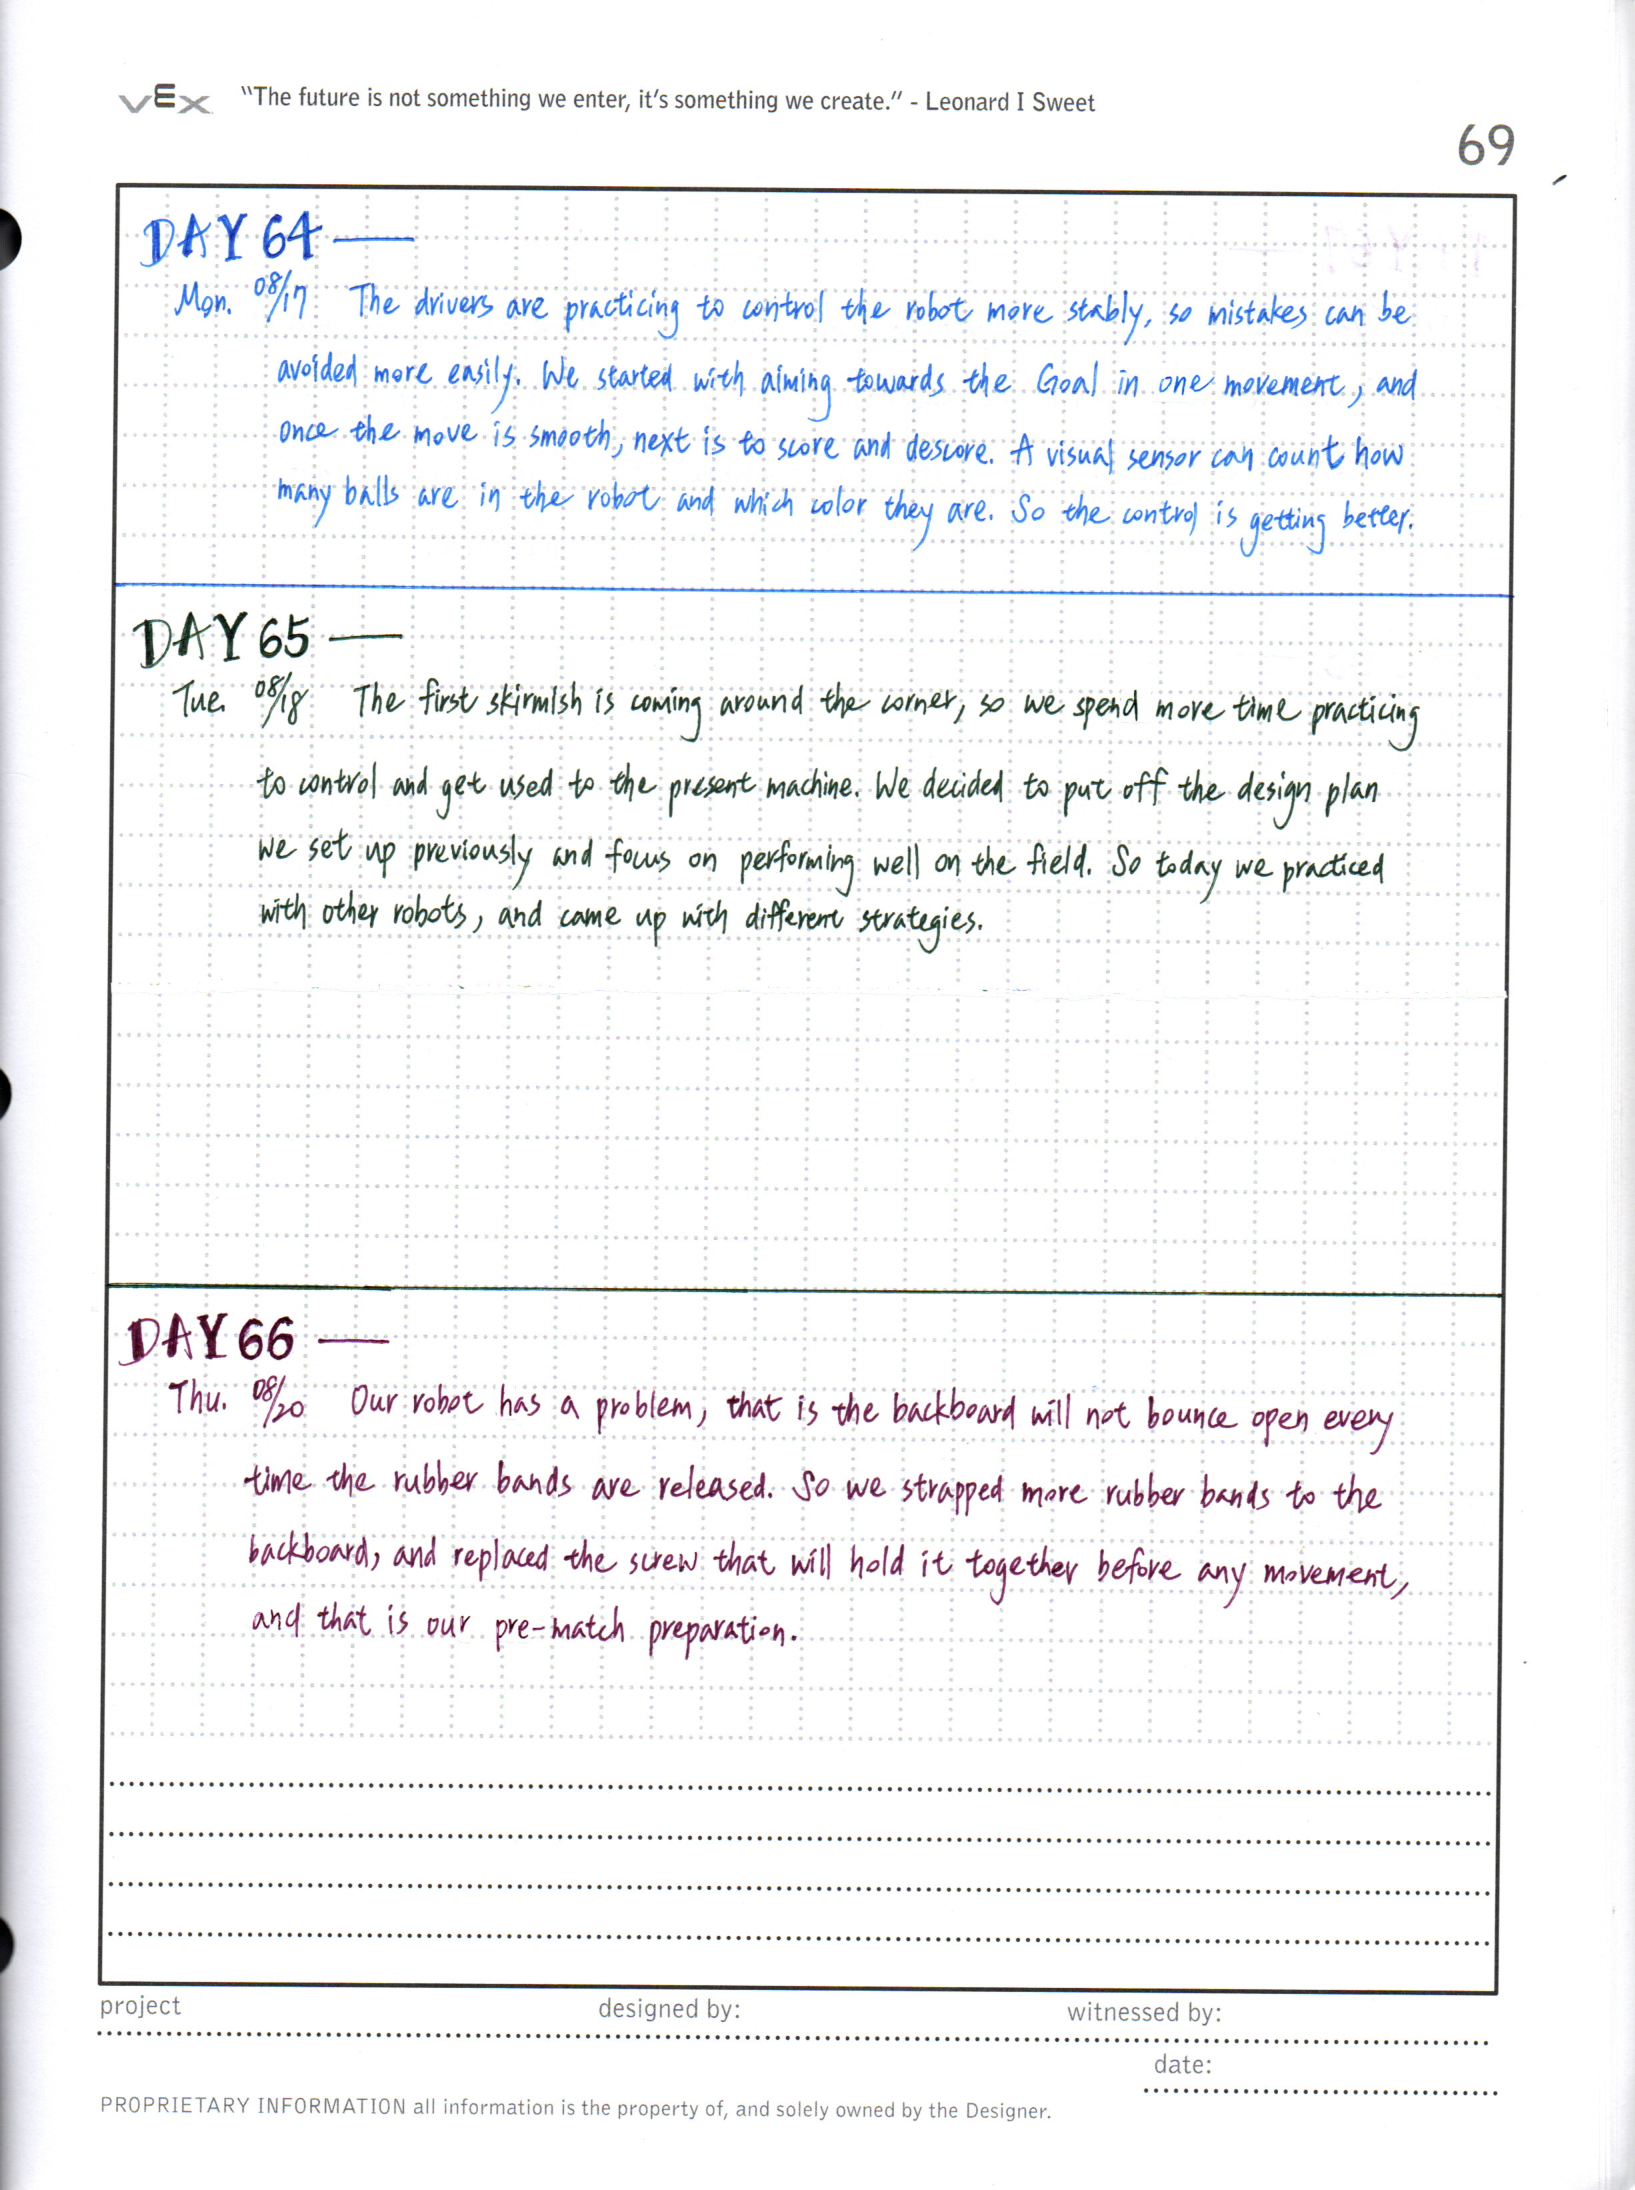 VEX "The future is not something we enter, it's something we create." - Leonard I Sweet
69
DAY 64 —
Mon. 08/17 The drivers are practicing to control the robot more stably, so mistakes can be
avoided more easily. We started with aiming towards the Goal in one movement, and
once the move is smooth, next is to score and descore. A visual sensor can count how
many balls are in the robot and which color they are. So the control is getting better.
DAY 65 —
Tue. 08/18 The first skirmish is coming around the corner, so we spend more time practicing
to control and get used to the present machine. We decided to put off the design plan
we set up previously and focus on performing well on the field. So today we practiced
with other robots, and came up with different strategies.
DAY 66 —
Thu. 08/20 Our robot has a problem, that is the backboard will not bounce open every
time the rubber bands are released. So we strapped more rubber bands to the
backboard, and replaced the screw that will hold it together before any movement,
and that is our pre-match preparation.
project designed by: witnessed by:
date:
PROPRIETARY INFORMATION all information is the property of, and solely owned by the Designer.